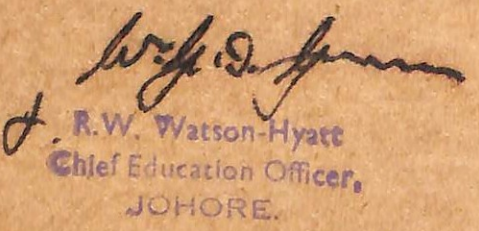 R.W. Watson-Hyatt
Chief Education Officer,
JOHORE.